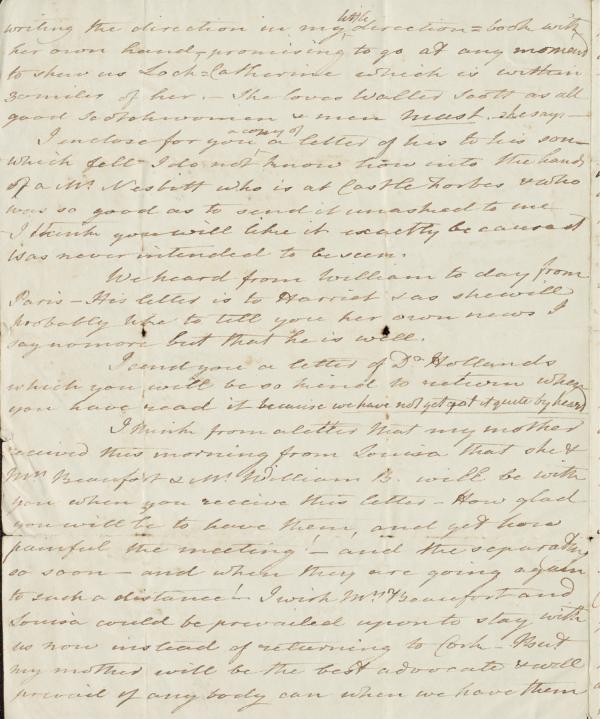 writing the direction in my little direction = book with
her own hand, - promising to go at any moment
to shew us Loch = Catherine which is within
30 miles of her. - She loves Walter Scott as all
good Scotchwomen & men must. she says -
I inclose for you a copy of a letter of his to his son
which fell I do not know how into the hands
of a Mr. Nesbitt who is at Castle Forbes & who
was so good as to send it unasked to me
I think you will like it exactly because it
was never intended to be seen.
We heard from William to day from
Paris - His letter is to Harriet & as she will
probably like to tell you her own news I
say no more but that he is well.
I send you a letter of Dr Hollands
which you will be so kind to return when
you have read it because we have not yet got it quite by heart
I think from a letter that my mother
received this morning from Louisa that she &
Mrs Beaufort & Mr. William B. will be with
you when you receive this letter - How glad
you will be to have them, and yet how
painful the meeting! - and the separation
so soon - and when they are going again
to such a distance - I wish Mrs Beaufort and
Louisa could be prevailed upon to stay with
us now instead of returning to Cork - But
my mother will be the best advocate & will
prevail if any body can when we have them